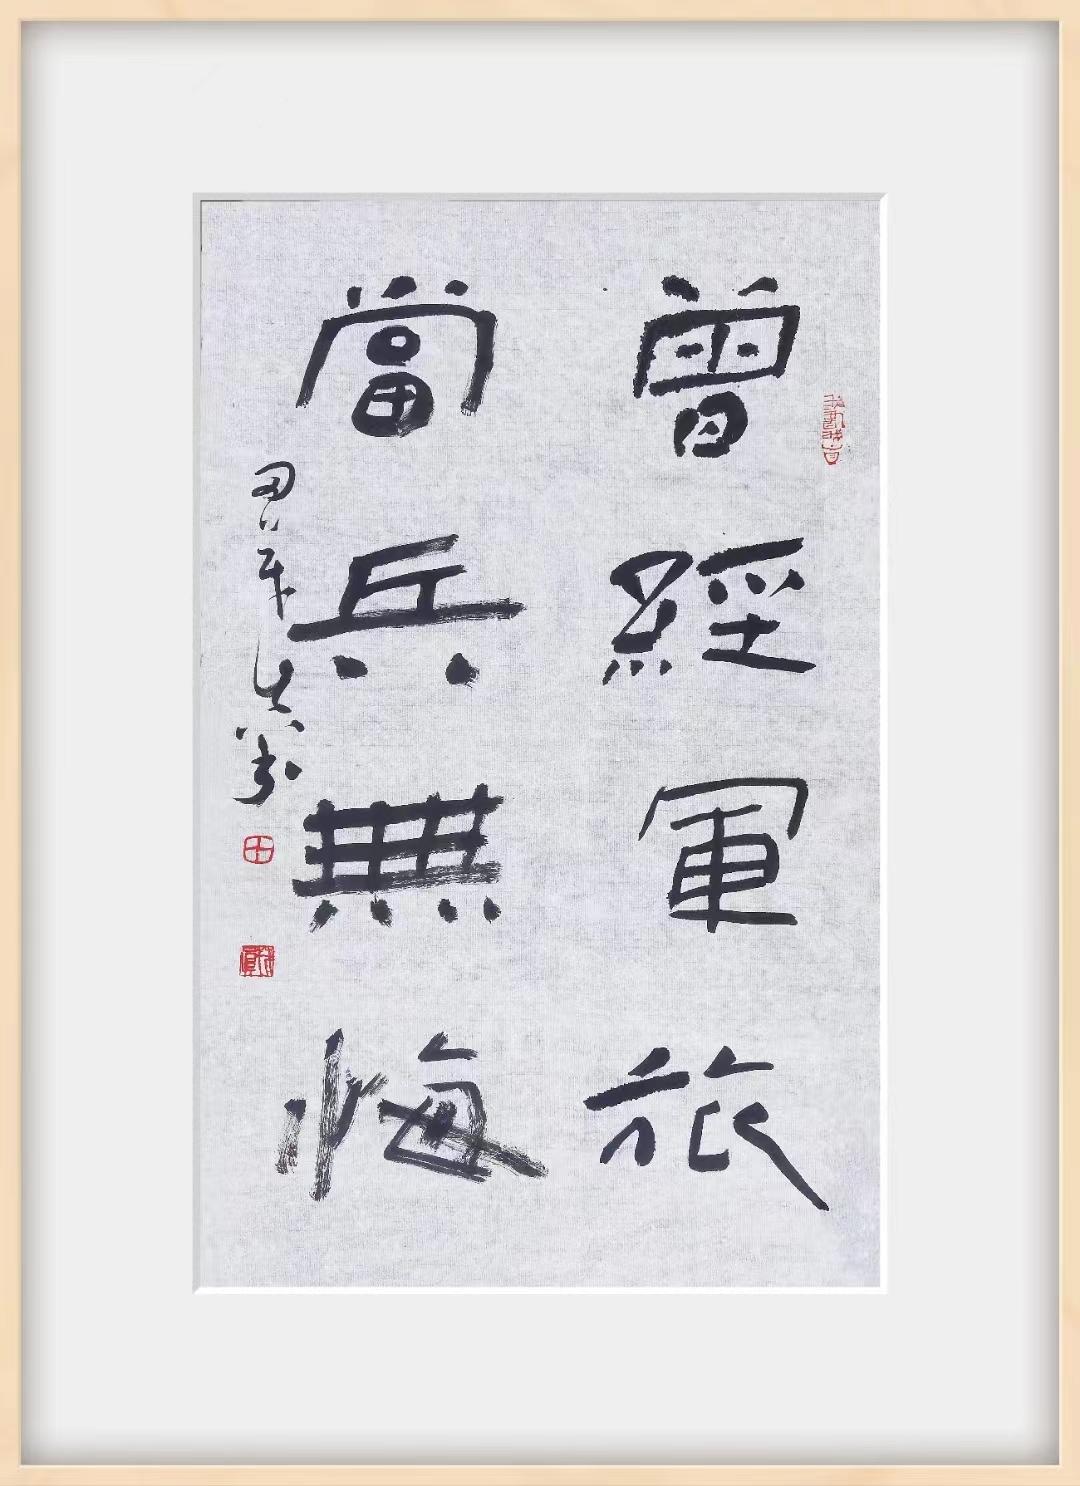 曾經軍旅
當兵無悔